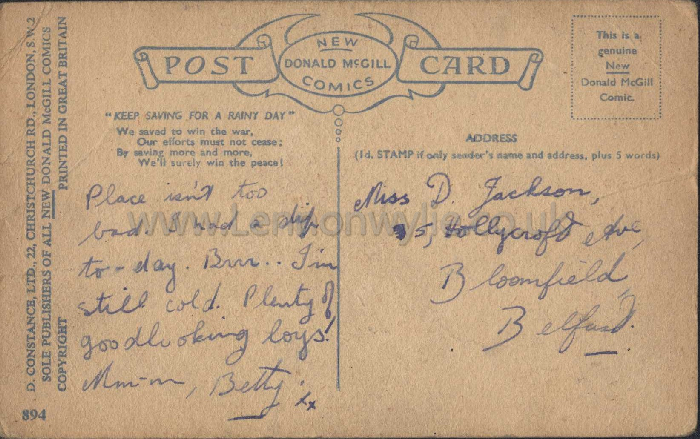 D. CONSTANCE, LTD., 22, CHRISTCHURCH RD., LONDON, S.W.2
SOLE PUBLISHERS OF ALL NEW DONALD McGILL COMICS
COPYRIGHT PRINTED IN GREAT BRITAIN
894
POST
NEW
DONALD McGILL
COMICS
CARD
This is a
genuine
New
Donald McGill
Comic.
"KEEP SAVING FOR A RAINY DAY"
We saved to win the war,
Our efforts must not cease;
By saving more and more,
We'll surely win the peace!
Place isn't too
bad. I had a dip
to-day. Brrr.. I'm
still cold. Plenty of
goodlooking boys!
Mm-m, Betty.
xx
ADDRESS
(1d. STAMP if only sender's name and address, plus 5 words)
Miss D. Jackson,
5, Hollycroft Ave,
Bloomfield,
Belfast.